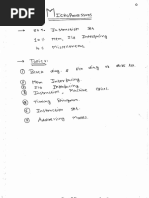 MICROPROCESSORS
→ 80% Instruction Set
10% Mem, I/O Interfacing
10% Microcontrol
→ Topics:
① Block diag. & pin diag of 8085 MP
② Mem Interfacing
③ I/O Interfacing
④ Instruction, Machine Cycle
⑤ Timing Diagram
⑥ Instruction Set
⑦ Addressing Modes